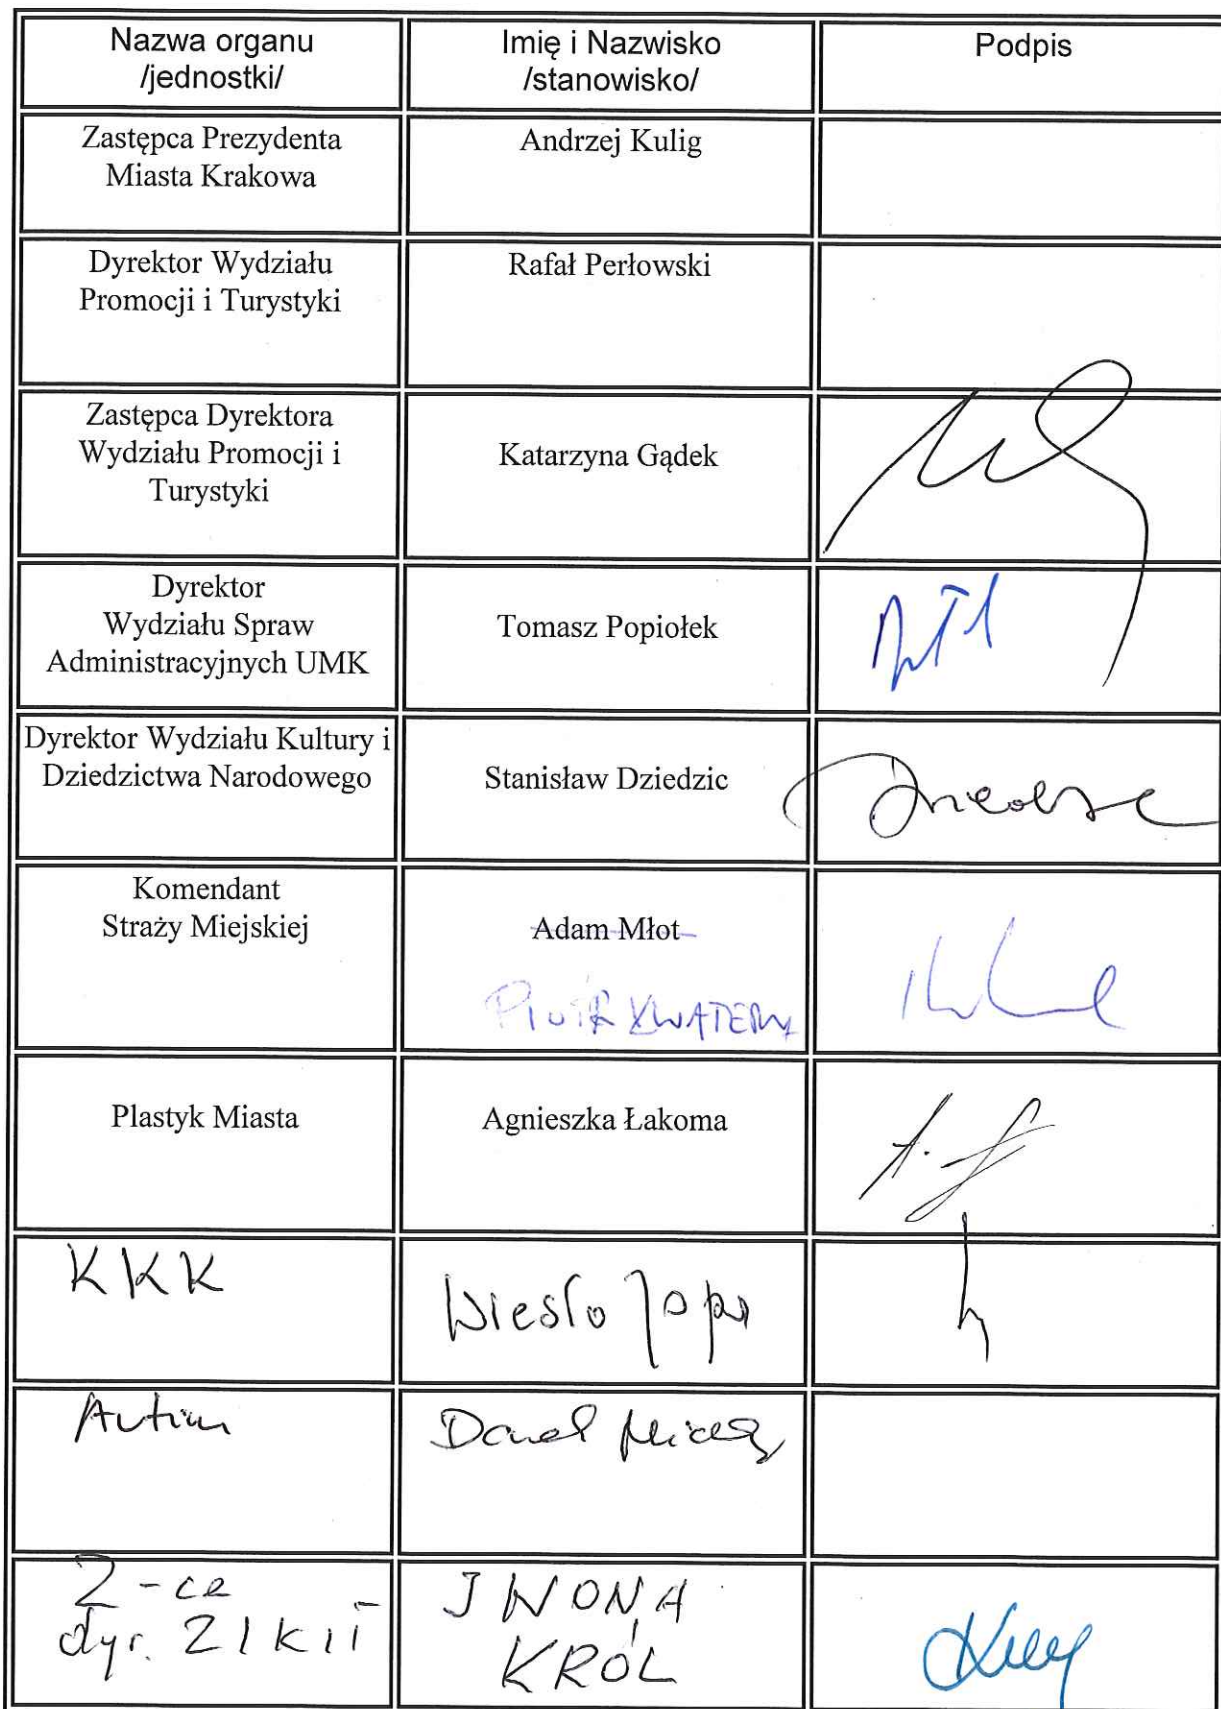 Nazwa organu
/jednostki/
Imię i Nazwisko
/stanowisko/
Podpis
Zastępca Prezydenta
Miasta Krakowa
Andrzej Kulig
Dyrektor Wydziału
Promocji i Turystyki
Rafał Perłowski
Zastępca Dyrektora
Wydziału Promocji i
Turystyki
Katarzyna Gądek
Dyrektor
Wydziału Spraw
Administracyjnych UMK
Tomasz Popiołek
Dyrektor Wydziału Kultury i
Dziedzictwa Narodowego
Stanisław Dziedzic
Komendant
Straży Miejskiej
Adam Młot
Plastyk Miasta
Agnieszka Łakoma
KKK
Z-ca
dyr. ZIKiT
IWONA
KRÓL